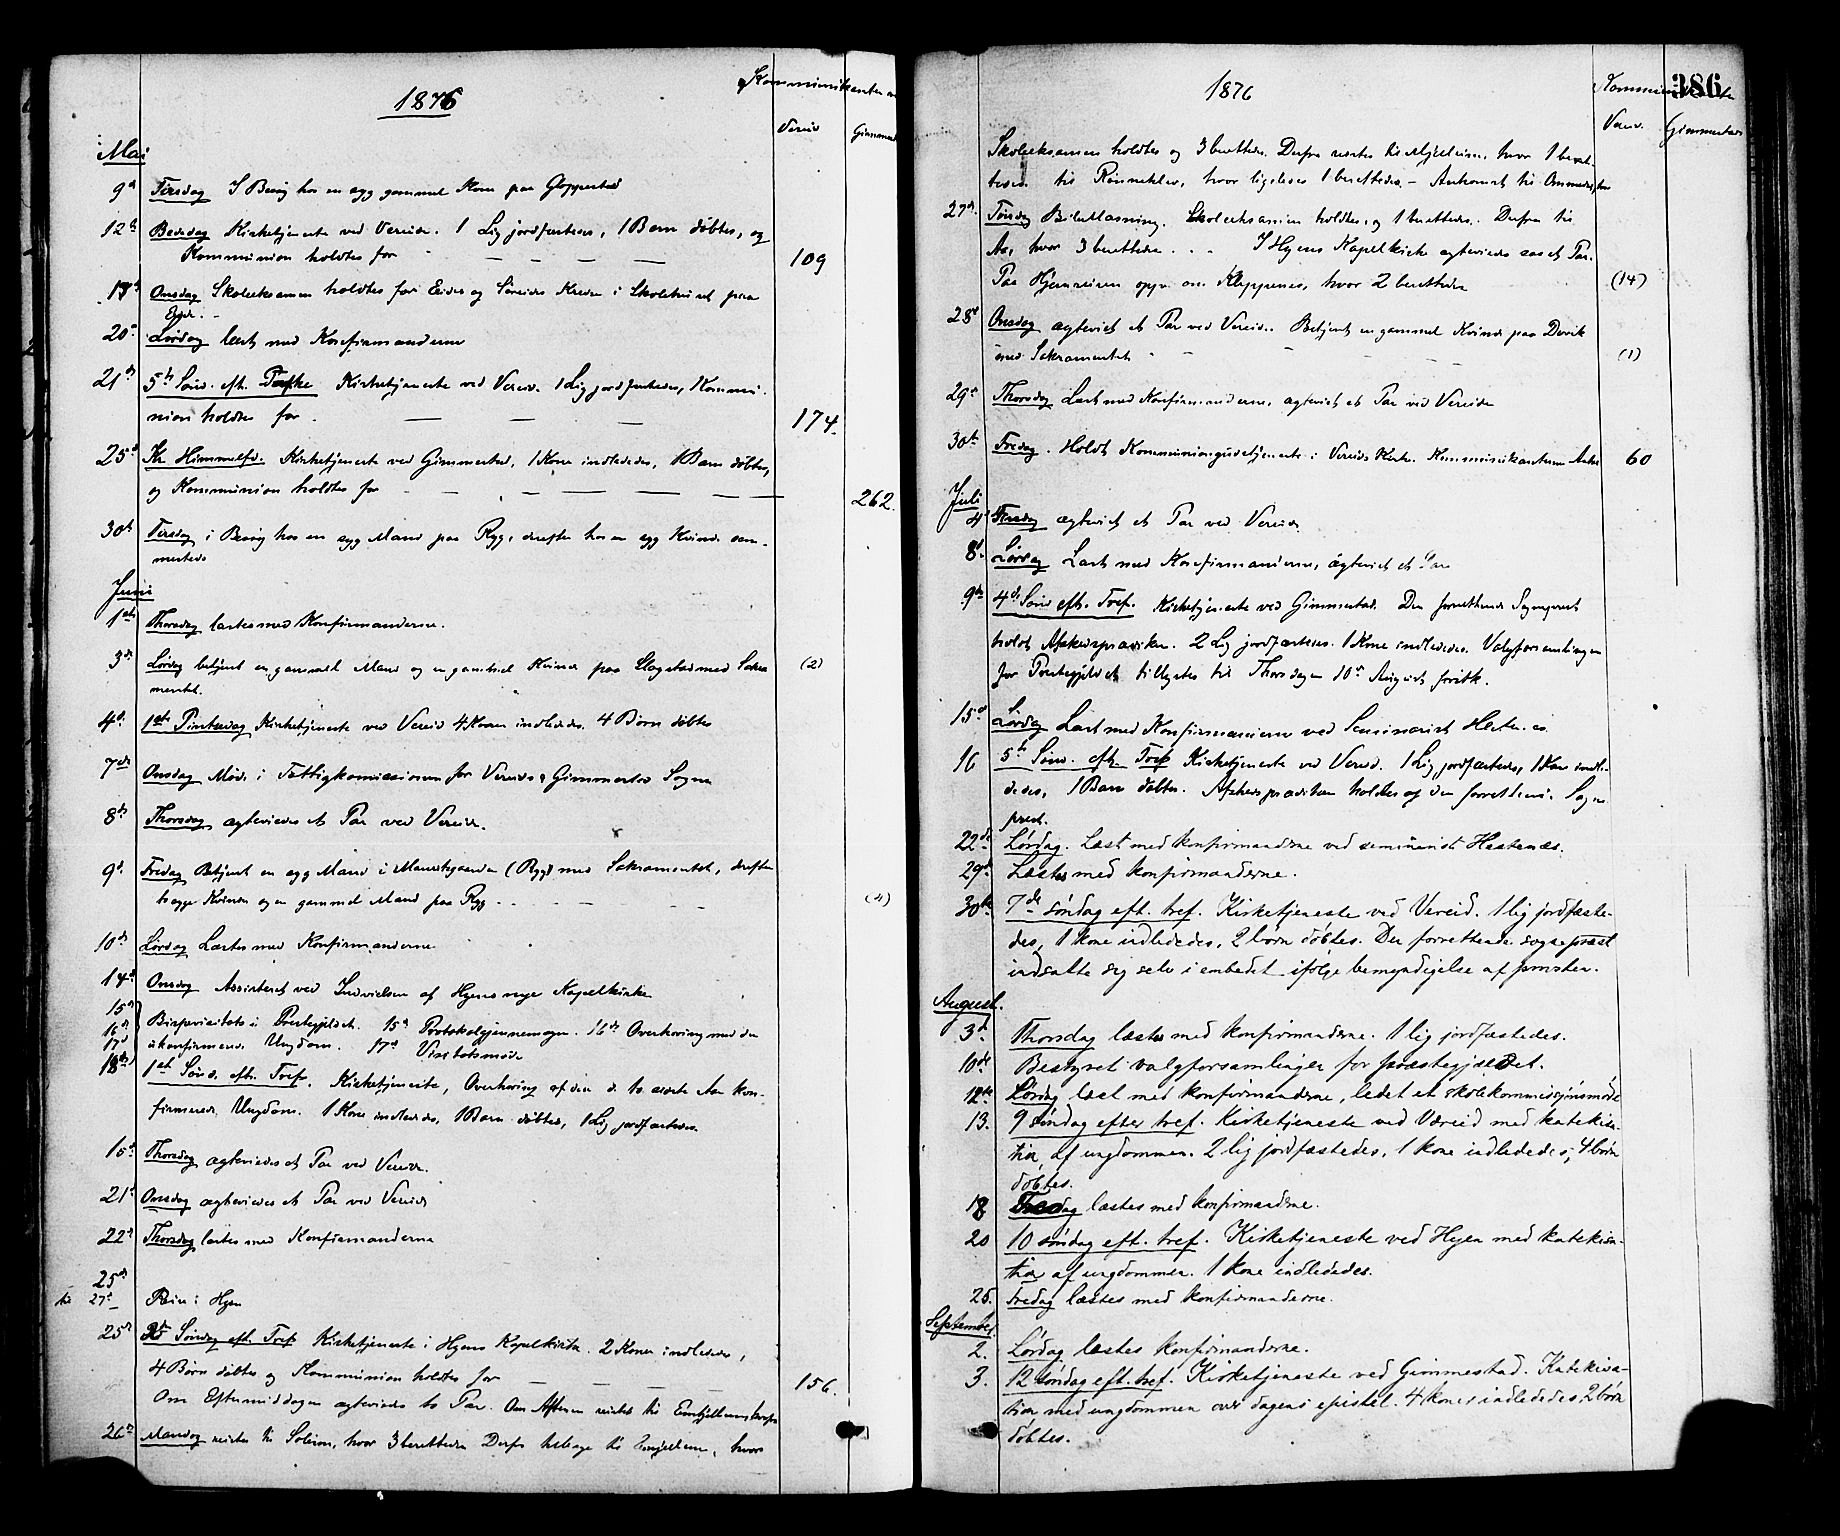 1876
Kommunikanter
Vereid
Gimmestad
Mai
9d Tirsdag I Besøg hos en syg gammel Kone paa Gloppestad
12te Bededag Kirketjeneste ved Vereide. 1 Lig jordfæstedes, 1 Barn døbtes, og
Kommunion holdtes for 109
Onsdag Skoleeksamen holdtes for Eides og Søreides Kredse i Skolehuset paa
Eide.
20de Lørdag læst med Konfirmanderne
21de 5te Sønd. eft. Paaske Kirketjeneste ved Vereid. 1 Lig jordfæstedes, Kommu-
nion holdtes for 174
25d Kr. Himmelfd. Kirketjeneste ved Gimmestad, 1 Kone indlededes, 1 Barn døbtes,
og Kommunion holdtes for 262
30te Tirsdag i Besøg hos en syg Mand paa Ryg, derefter hos en syg Kvinde sam-
mesteds
Juni
1ste Thorsdag læstes med Konfirmanderne.
3de Lørdag betjent en gammel Mand og en gammel Kvinde paa med Sakra- (2)
mentet.
4d. 1ste Pintsedag Kirketjeneste ved Vereid 4 Koner indlededes. 4 Børn døbtes
7de Onsdag Møde i Fattigkomissionen for Vereids & Gimmestad Sogne
8de Thorsdag ægteviedes et Par ved Vereide.
9d Fredag Betjent en syg Mand i (Ryg) med Sakramentet, derefter
Kvinde og en gammel Mand paa Ryg (4)
10de Lørdag Læstes med Konfirmanderne
14d Onsdag Assisteret ved Indvielsen af Hyens nye Kapelkirke
15d
16de Bispevisitats i Præstegjeldet. 15d Protokolgjennemsyn. 16de Overhøring med den
17d ukonfirmerede Ungdom. 17d Visitatsmøde
18de 1ste Sønd. eft. Tref. Kirketjeneste, Overhøring af den d. to sidste Aar kon-
firmerede Ungdom. 1 Kone indlededes, 1 Barn døbtes, 1 Lig jordfæstedes.
15d Thorsdag ægteviedes et Par ved Vereide.
21d Onsdag ægteviedes et Par ved Vereide
22d Thorsdag læstes med Konfirmanderne
25de
til 27d Reise i Hyen
25de 3d Søndag eft. Tref Kirketjeneste i Hyens Kapelkirke. 2 Koner indlededes,
4 Børn døbtes og Kommunion holdtes for 156.
Om Eftermiddagen ægteviedes to Par. Om Aftenen reistes til
26de Mandag reistes til Solem, hvor 3 berettedes Derfra tilbage til, hvor
1876
Kommunikanter
386
Vereid.
Gimmestad
Skoleeksamen holdtes og 3 berettedes. Derfra reistes til Mjellem, hvor 1 beret-
tedes. til Rønneklev, hvor ligeledes 1 berettedes. – Ankomst til Ommedal, hvor
27de. Tirsdag Bibellæsning. Skoleeksamen holdtes, og 1 berettedes. Derfra til
Aa, hvor 3 berettedes. I Hyens Kapelkirke ægteviedes saa et Par.
Paa Hjemreisen opp om Kleppenes, hvor 2 berettedes (14)
28d Onsdag ægteviet et Par ved Vereid. Betjent en gammel Kvinde paa Devik
med Sakramentet (1)
29de Thorsdag Læst med Konfirmanderne, ægteviet et Par ved Vereide
30te Fredag. Holdt Kommuniongudstjeneste i Vereids Kirke. Kommunikanternes Antal 60
Juli
4d Tirsdag ægteviet et Par ved Vereide
8d. Lørdag Læst med Konfirmanderne, ægteviet et Par
9de 4de Sønd efter Tref. Kirketjeneste ved Gimmestad. Den forrettende Sogneprest
holdt Afskedsprædiken. 2 Lig jordfæstedes. 1 Kone indlededes. Valgforsamlingen
for Præstegjeldet tillystes til Thorsdagen 10de August førstk.
15de Lørdag Læst med Konfirmanderne ved Seminarist Hestenes
16 5te Sønd. eftr. Tref Kirketjeneste ved Vereid. 1 Lig jordfæstedes, 1 Kone indle-
dedes, 1 Barn døbtes. Afskedsprædiken holdtes af den forrettende Sogne-
prest.
22de Lørdag. Læst med konfirmanderne ved seminarist Hestenæs.
29de Læstes med konfirmanderne.
30te 7de søndag eft. tref. Kirketjeneste ved Vereid. 1 lig jordfæste-
des, 1 kone indlededes, 2 børn døbtes. Den forrettende sogneprest
indsatte sig selv i embedet ifølge bemyndigelse af provsten.
August.
3d Thorsdag læstes med konfirmanderne. 1 lig jordfæstedes.
10de Bestyret valgforsamlingen for præstegjeldet.
12te Lørdag læst med konfirmanderne, ledet et skolekommissjonsmøde
13. 9 søndag efter tref. Kirketjeneste ved Væreid med katekisa-
tion af ungdommen. 2 lig jordfæstedes, 1 kone indlededes, 4 børn
døbtes.
18 Fredag læstes med konfirmanderne.
20 10 søndag eft. tref. Kirketjeneste ved Hyen med katekisa-
tion af ungdommen. 1 kone indlededes.
25. Fredag læstes med konfirmanderne.
September.
2. Lørdag læstes konfirmanderne.
3. 12 søndag eft. tref. Kirketjeneste ved Gimmestad. Katekisa-
tion med ungdommen over dagens epistel. 4 koner indlededes, 2 børn
døbtes.